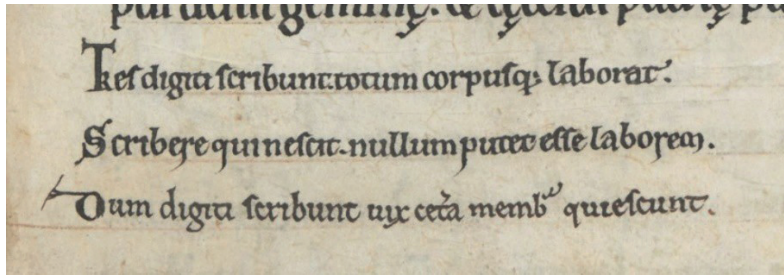 Tres digiti scribunt. totum corpusq; laborat.
Scribere qui nescit. nullum putet esse laborem.
Dum digiti scribunt uix cet̃a memb᷒ quiescunt.